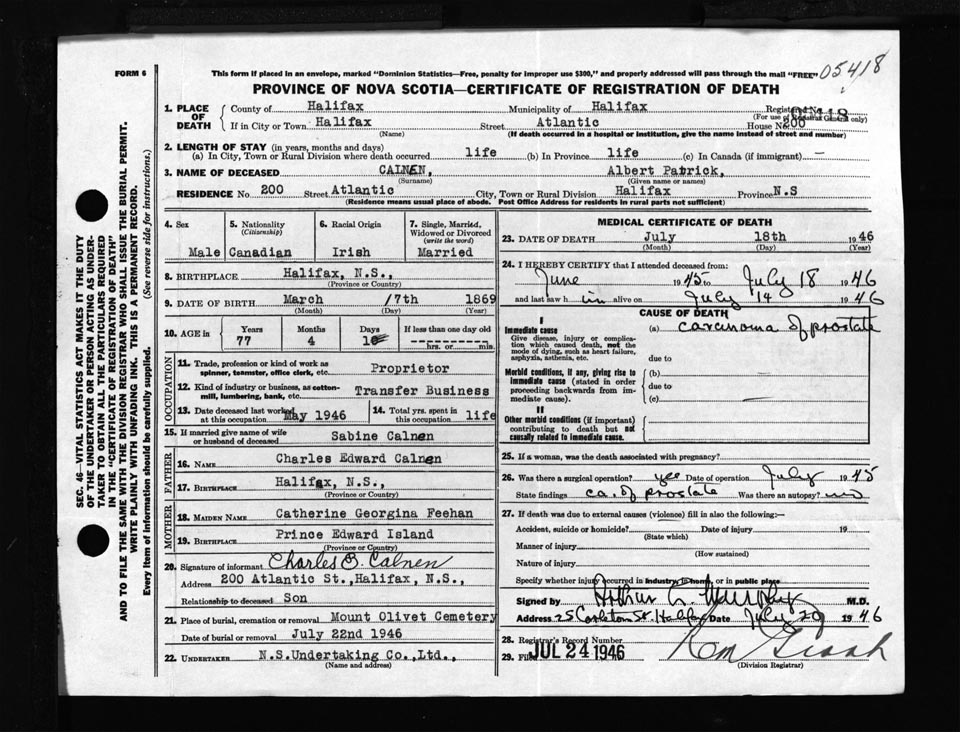 FORM 6
This form if placed in an envelope, marked "Dominion Statistics—Free, penalty for improper use $300," and properly addressed will pass through the mail "FREE"
05418
PROVINCE OF NOVA SCOTIA—CERTIFICATE OF REGISTRATION OF DEATH
1. PLACE OF DEATH
County of Halifax Municipality of Halifax Registr No.
(For use of Registrar General only)
If in City or Town Halifax Street Atlantic House No. 200
(Name) (If death occurred in a hospital or institution, give the name instead of street and number)
2. LENGTH OF STAY (in years, months and days)
(a) In City, Town or Rural Division where death occurred life (b) In Province life (c) In Canada (if immigrant) —
3. NAME OF DECEASED CALNEN, Albert Patrick,
(Surname) (Given name or names)
RESIDENCE No. 200 Street Atlantic City, Town or Rural Division Halifax Province N.S
(Residence means usual place of abode. Post Office Address for residents in rural parts not sufficient)
4. Sex Male
5. Nationality (Citizenship) Canadian
6. Racial Origin Irish
7. Single, Married, Widowed or Divorced (write the word) Married
8. BIRTHPLACE Halifax, N.S.,
(Province or Country)
9. DATE OF BIRTH March /7th 1869
(Month) (Day) (Year)
10. AGE in Years 77 Months 4 Days If less than one day old
hrs. or min.
OCCUPATION
11. Trade, profession or kind of work as spinner, teamster, office clerk, etc. Proprietor
12. Kind of industry or business, as cotton-mill, lumbering, bank, etc. Transfer Business
13. Date deceased last worked at this occupation May 1946
14. Total yrs. spent in this occupation life
15. If married give name of wife or husband of deceased Sabine Calnen
FATHER
16. NAME Charles Edward Calnen
17. BIRTHPLACE Halifax, N.S.,
(Province or Country)
MOTHER
18. MAIDEN NAME Catherine Georgina Feehan
19. BIRTHPLACE Prince Edward Island
(Province or Country)
20. Signature of informant Charles B. Calnen
Address 200 Atlantic St., Halifax, N.S.,
Relationship to deceased Son
21. Place of burial, cremation or removal Mount Olivet Cemetery
Date of burial or removal July 22nd 1946
22. UNDERTAKER N.S.Undertaking Co.,Ltd.,
(Name and address)
MEDICAL CERTIFICATE OF DEATH
23. DATE OF DEATH July 18th 1946
(Month) (Day) (Year)
24. I HEREBY CERTIFY that I attended deceased from:
June 1945 to July 18 1946
and last saw h im alive on July 14 1946
CAUSE OF DEATH
I
Immediate cause (a) carcinoma of prostate
Give disease, injury or complication which caused death, not the mode of dying, such as heart failure, asphyxia, asthenia, etc.
due to
Morbid conditions, if any, giving rise to immediate cause (stated in order proceeding backwards from immediate cause).
(b)
due to
(c)
II
Other morbid conditions (if important) contributing to death but not causally related to immediate cause.
25. If a woman, was the death associated with pregnancy?
26. Was there a surgical operation? yes Date of operation July 1945
State findings ca. of prostate Was there an autopsy? no
27. If death was due to external causes (violence) fill in also the following:—
Accident, suicide or homicide? Date of injury 19
(State which)
Manner of injury
(How sustained)
Nature of injury
Specify whether injury occurred in industry, in home, or in public place
Signed by Arthur E. Murphy M.D.
Address 25 Carleton St. Halifax Date July 20 1946
28. Registrar's Record Number
29. Filed JUL 24 1946
(Division Registrar)
SEC. 46—VITAL STATISTICS ACT MAKES IT THE DUTY
OF THE UNDERTAKER OR PERSON ACTING AS UNDER-
TAKER TO OBTAIN ALL THE PARTICULARS REQUIRED
IN THE "CERTIFICATE OF REGISTRATION OF DEATH"
AND TO FILE THE SAME WITH THE DIVISION REGISTRAR WHO SHALL ISSUE THE BURIAL PERMIT.
WRITE PLAINLY WITH UNFADING INK. THIS IS A PERMANENT RECORD.
Every item of information should be carefully supplied. (See reverse side for instructions.)